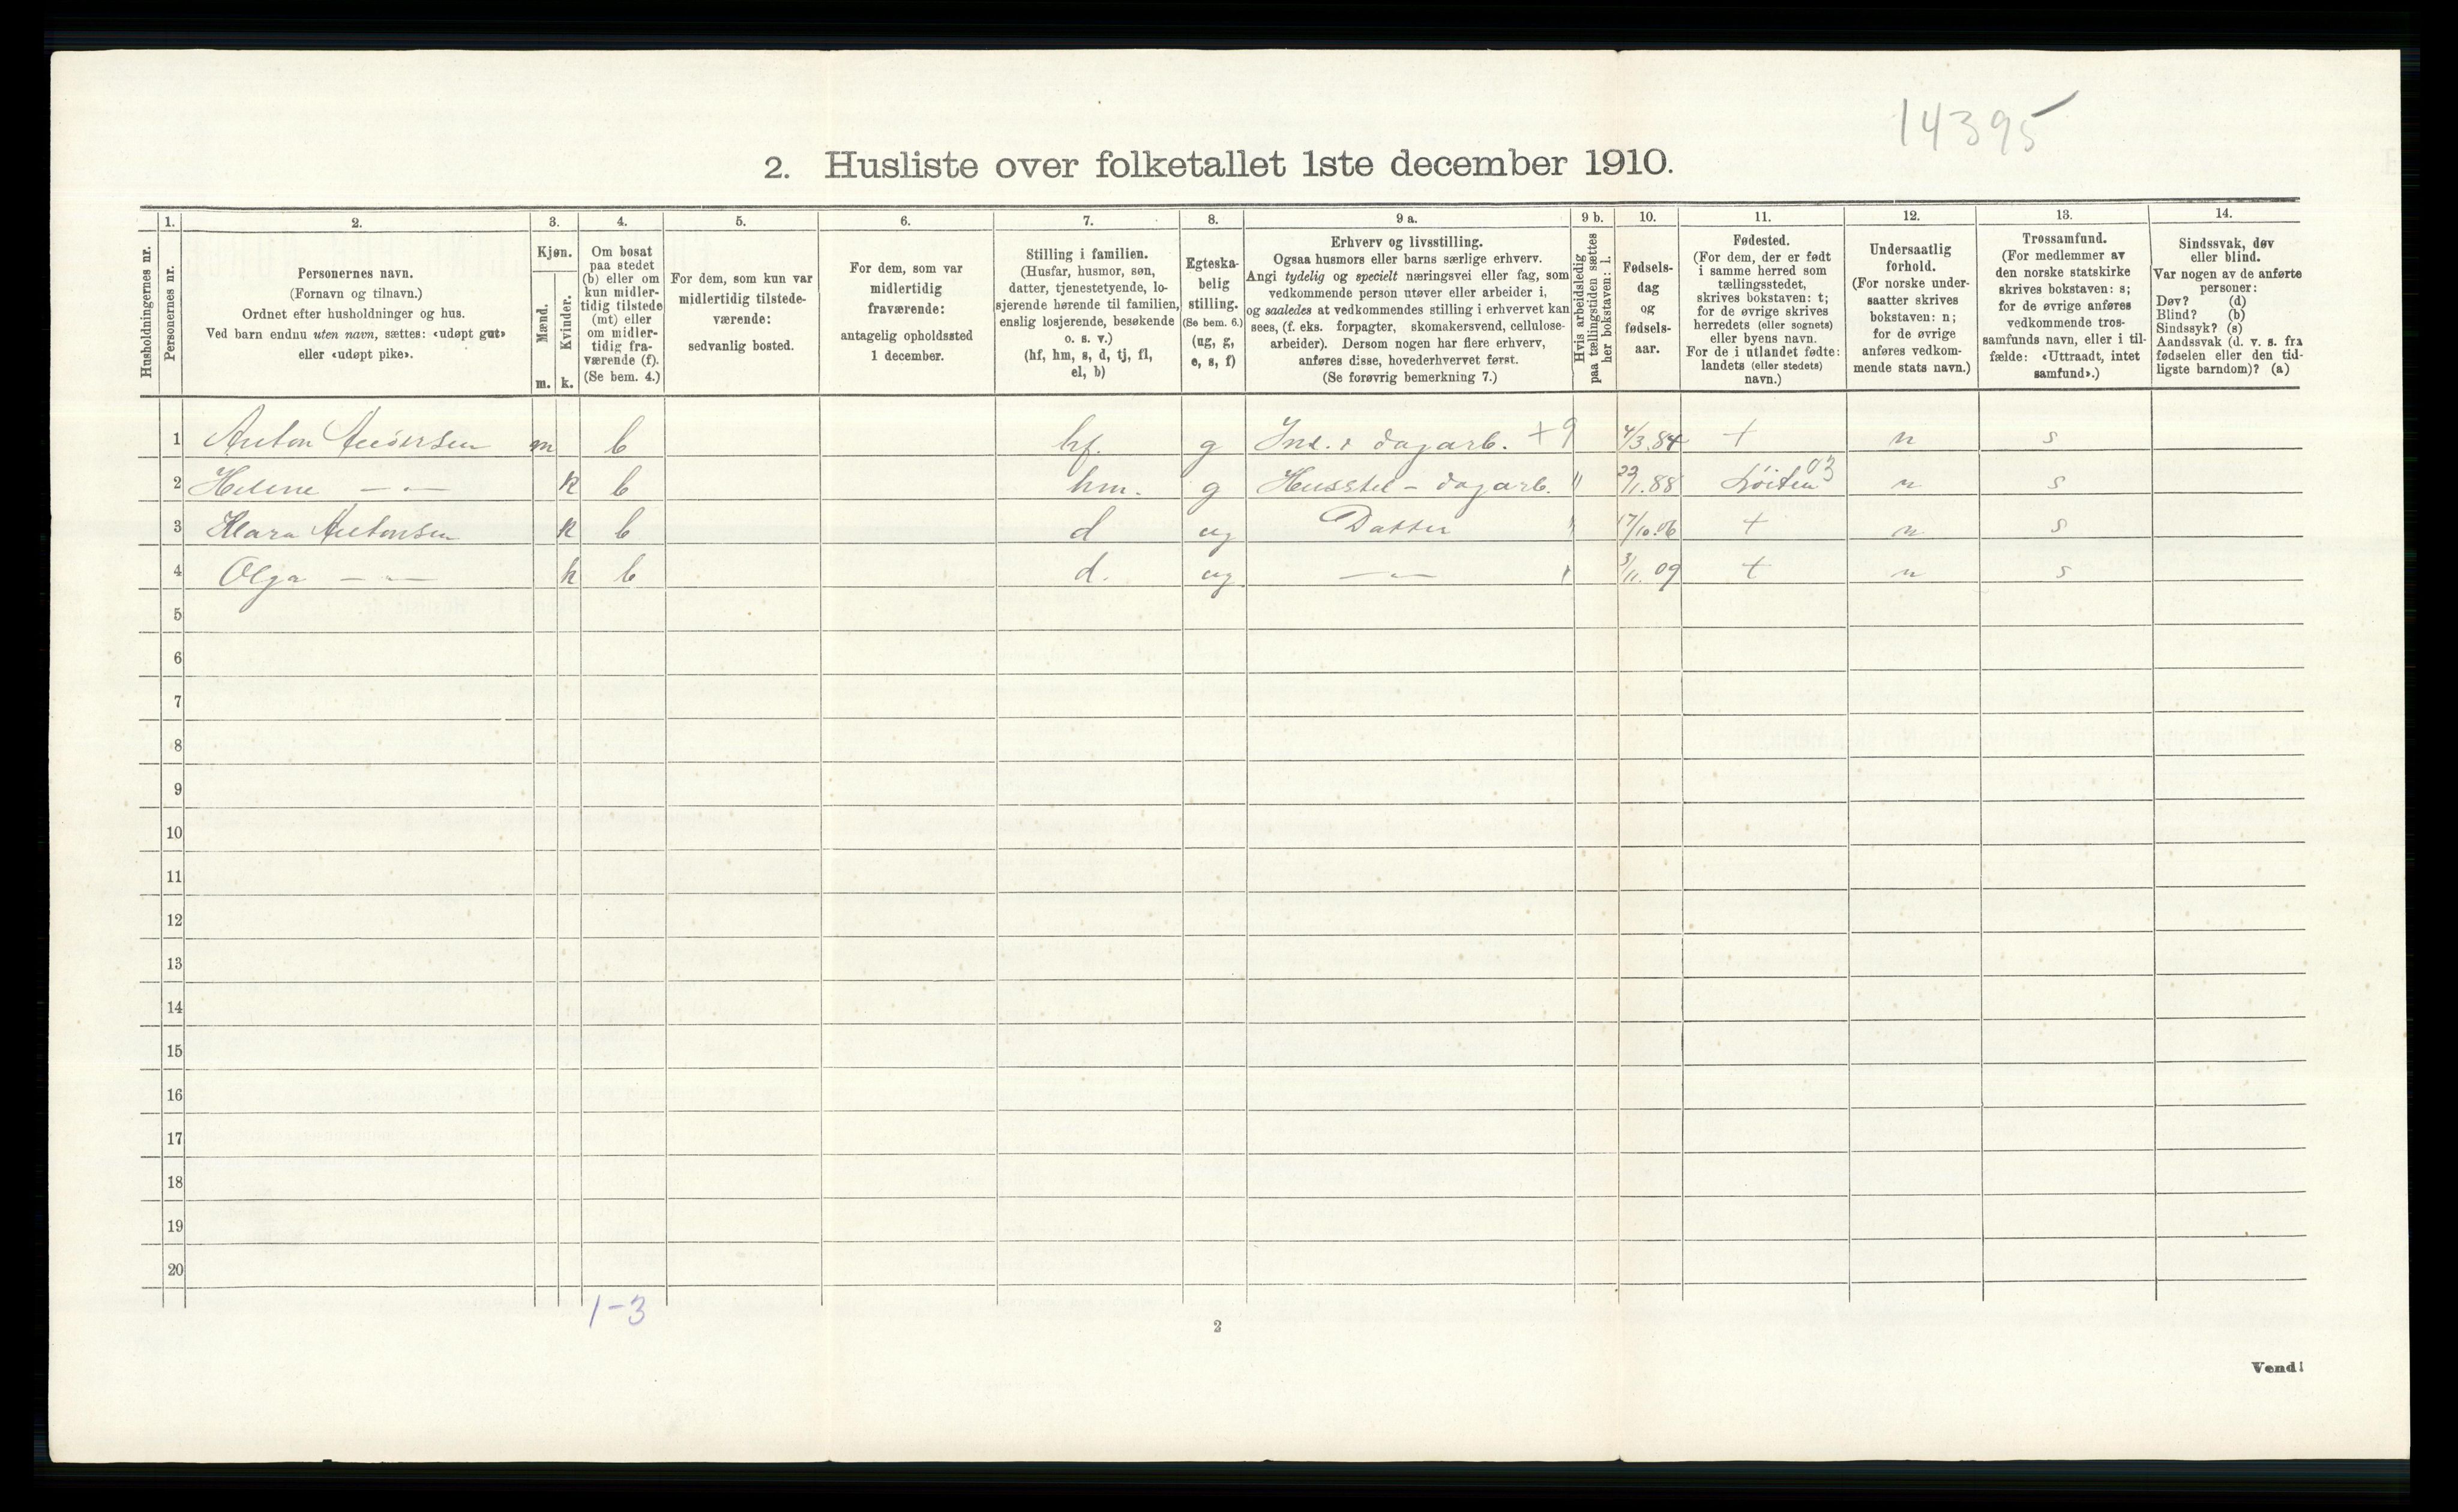 14395
2. Husliste over folketallet 1ste december 1910.
Husholdningernes nr.
1.
Personernes nr.
2.
Personernes navn.
(Fornavn og tilnavn.)
Ordnet efter husholdninger og hus.
Ved barn endnu uten navn, sættes: «udøpt gut»
eller «udøpt pike».
3.
Kjøn.
Mænd.
Kvinder.
m. k.
4.
Om bosat
paa stedet
(b) eller om
kun midler-
tidig tilstede
(mt) eller
om midler-
tidig fra-
værende (f).
(Se bem. 4.)
5.
For dem, som kun var
midlertidig tilstede-
værende:
sedvanlig bosted.
6.
For dem, som var
midlertidig
fraværende:
antagelig opholdssted
1 december.
7.
Stilling i familien.
(Husfar, husmor, søn,
datter, tjenestetyende, lo-
sjerende hørende til familien,
enslig losjerende, besøkende
o. s. v.)
(hf, hm, s, d, tj, fl,
el, b)
8.
Egteska-
belig
stilling.
(Se bem. 6.)
(ug, g,
e, s, f)
9 a.
Erhverv og livsstilling.
Ogsaa husmors eller barns særlige erhverv.
Angi tydelig og specielt næringsvei eller fag, som
vedkommende person utøver eller arbeider i,
og saaledes at vedkommendes stilling i erhvervet kan
sees, (f. eks. forpagter, skomakersvend, cellulose-
arbeider). Dersom nogen har flere erhverv,
anføres disse, hovederhvervet først.
(Se forøvrig bemerkning 7.)
9 b.
Hvis arbeidsledig
paa tællingstiden sættes
her bokstaven: l.
10.
Fødsels-
dag
og
fødsels-
aar.
11.
Fødested.
(For dem, der er født
i samme herred som
tællingsstedet,
skrives bokstaven: t;
for de øvrige skrives
herredets (eller sognets)
eller byens navn.
For de i utlandet fødte:
landets (eller stedets)
navn.)
12.
Undersaatlig
forhold.
(For norske under-
saatter skrives
bokstaven: n;
for de øvrige
anføres vedkom-
mende stats navn.)
13.
Trossamfund.
(For medlemmer av
den norske statskirke
skrives bokstaven: s;
for de øvrige anføres
vedkommende tros-
samfunds navn, eller i til-
fælde: «Uttraadt, intet
samfund».)
14.
Sindssvak, døv
eller blind.
Var nogen av de anførte
personer:
Døv? (d)
Blind? (b)
Sindssyk? (s)
Aandssvak (d. v. s. fra
fødselen eller den tid-
ligste barndom)? (a)
1 Anton Andersen m b hf. g Ins. & dagarb. +9 4/3.84 t n s
2 Helene —"— k b hm. g Husstel - dagarb. " 23/1.88 Löiten 03 n s
3 Klara Antonsen k b d ug Datter " 17/10.06 t n s
4 Olga —"— k b d. ug —"— " 3/11. 09 t n s
5
6
7
8
9
10
11
12
13
14
15
16
17
18
19
20
1-3
2
Vend!